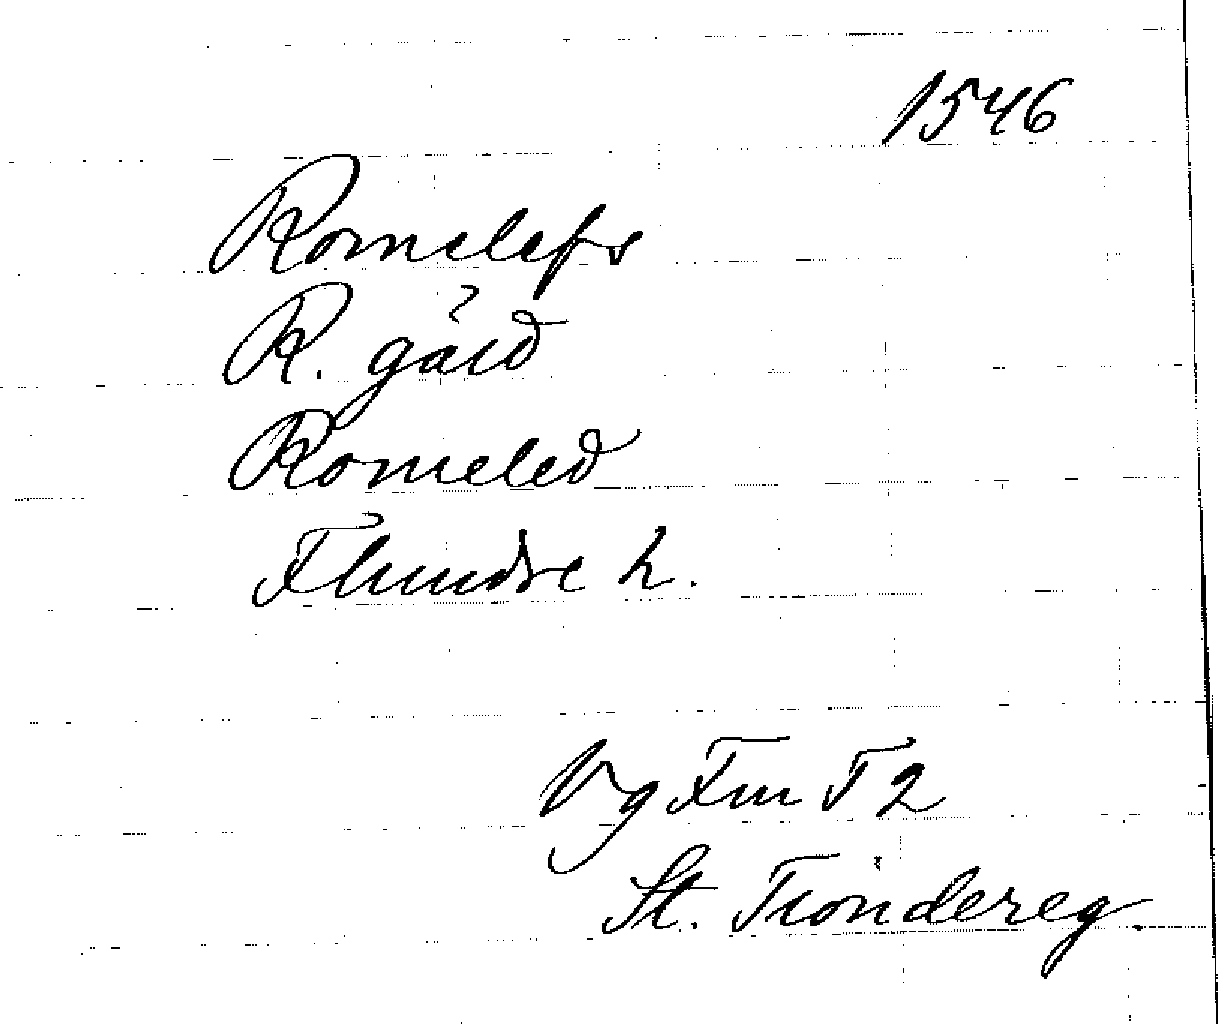 1546
Romelefs
R. gård
Romeled
Flundre h.
Vg Fm T 2
St. Tiondereg.